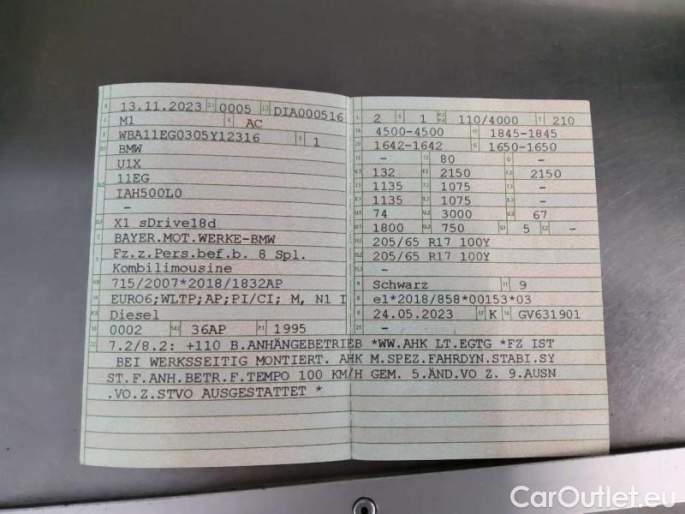 13.11.2023 0005 DIA000516
M1 AC
WBA11EG0305Y12316 1
BMW
U1X
11EG
IAH500L0
-
X1 sDrive18d
BAYER.MOT.WERKE-BMW
Fz.z.Pers.bef.b. 8 Spl.
Kombilimousine
715/2007*2018/1832AP
EURO6;WLTP;AP;PI/CI; M, N1 I
Diesel
0002 36AP 1995
2 1 110/4000 210
4500-4500 1845-1845
1642-1642 1650-1650
- 80 -
132 2150 2150
1135 1075 -
1135 1075 -
74 3000 67
1800 750 5 -
205/65 R17 100Y
205/65 R17 100Y
-
Schwarz 9
e1*2018/858*00153*03
24.05.2023 K GV631901
-
7.2/8.2: +110 B.ANHÄNGEBETRIEB *WW.AHK LT.EGTG *FZ IST
BEI WERKSSEITIG MONTIERT. AHK M.SPEZ.FAHRDYN.STABI.SY
ST.F.ANH.BETR.F.TEMPO 100 KM/H GEM. 5.ÄND.VO Z. 9.AUSN
.VO.Z.STVO AUSGESTATTET *
CarOutlet.eu